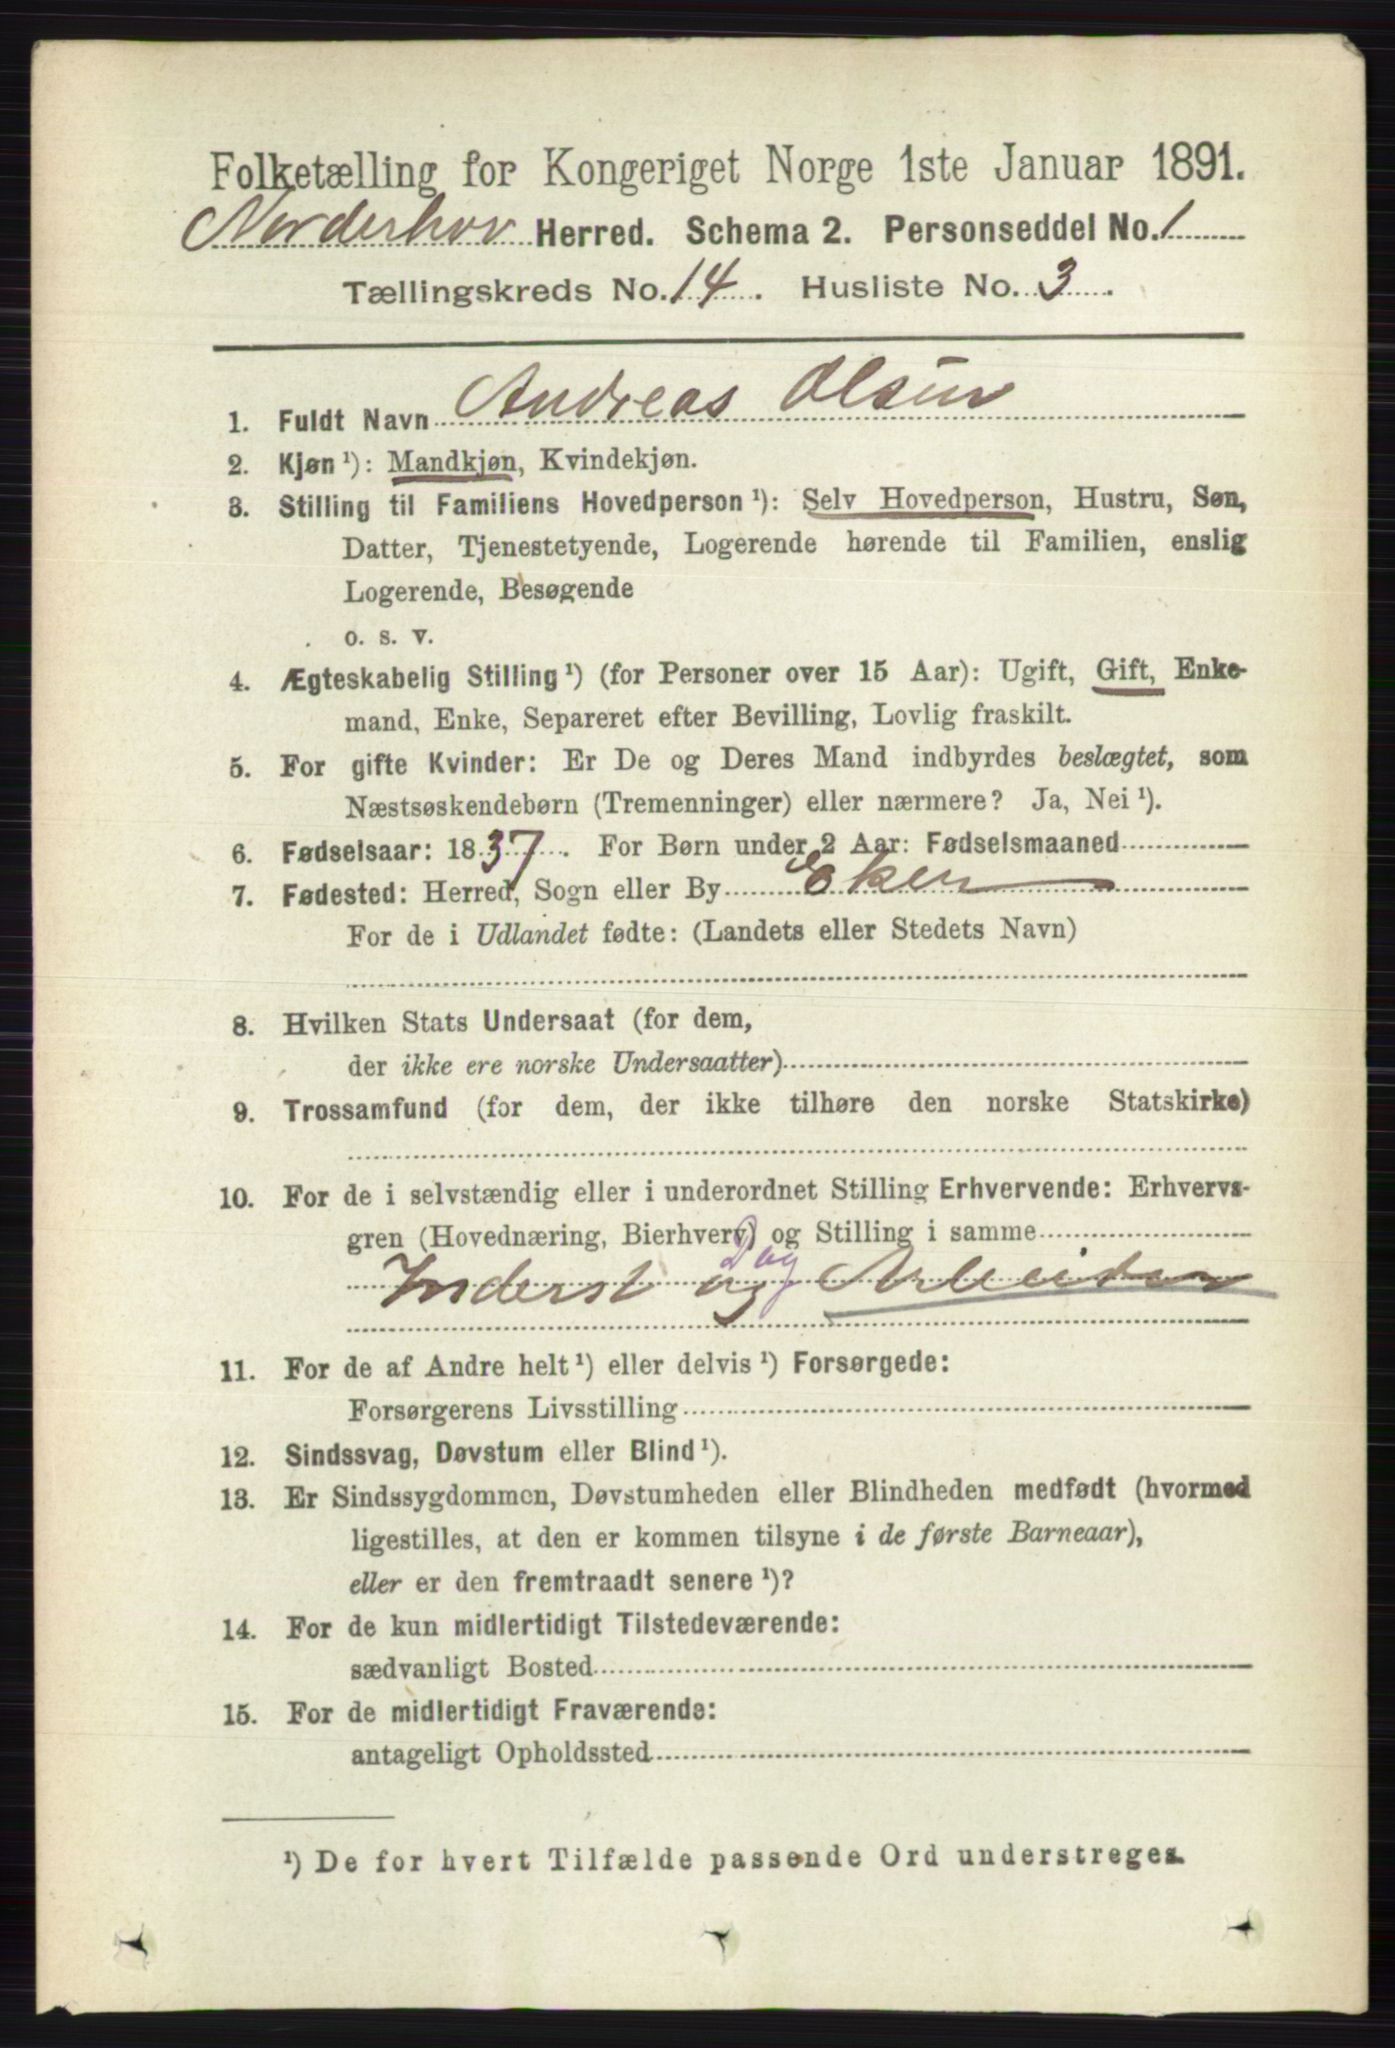 Folketælling for Kongeriget Norge 1ste Januar 1891.
Norderhov Herred. Schema 2. Personseddel No. 1
Tællingskreds No. 14. Husliste No. 3.
1. Fuldt Navn Andreas Olsen
2. Kjøn ¹): Mandkjøn, Kvindekjøn.
3. Stilling til Familiens Hovedperson ¹): Selv Hovedperson, Hustru, Søn,
Datter, Tjenestetyende, Logerende hørende til Familien, enslig
Logerende, Besøgende
o. s. v.
4. Ægteskabelig Stilling ¹) (for Personer over 15 Aar): Ugift, Gift, Enke-
mand, Enke, Separeret efter Bevilling, Lovlig fraskilt.
5. For gifte Kvinder: Er De og Deres Mand indbyrdes beslægtet, som
Næstsøskendebørn (Tremenninger) eller nærmere? Ja, Nei ¹).
6. Fødselsaar: 1837. For Børn under 2 Aar: Fødselsmaaned
7. Fødested: Herred, Sogn eller By Eker
For de i Udlandet fødte: (Landets eller Stedets Navn)
8. Hvilken Stats Undersaat (for dem,
der ikke ere norske Undersaatter)
9. Trossamfund (for dem, der ikke tilhøre den norske Statskirke)
10. For de i selvstændig eller i underordnet Stilling Erhvervende: Erhvervs-
gren (Hovednæring, Bierhverv) og Stilling i samme
Dag
Inderst og Arbeider
11. For de af Andre helt ¹) eller delvis ¹) Forsørgede:
Forsørgerens Livsstilling
12. Sindssvag, Døvstum eller Blind ¹).
13. Er Sindssygdommen, Døvstumheden eller Blindheden medfødt (hvormed
ligestilles, at den er kommen tilsyne i de første Barneaar),
eller er den fremtraadt senere ¹)?
14. For de kun midlertidigt Tilstedeværende:
sædvanligt Bosted
15. For de midlertidigt Fraværende:
antageligt Opholdssted
¹) De for hvert Tilfælde passende Ord understreges.